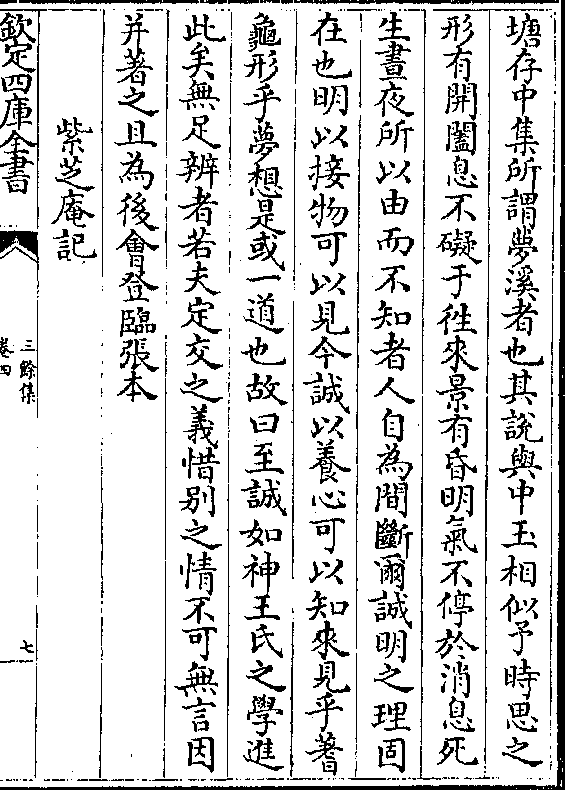 塘存中集所謂夢溪者也其說與中玉相似予時思之
形有開闔息不礙于徃來景有昏明氣不停於消息死
生晝夜所以由而不知者人自為間斷爾誠明之理固
在也明以接物可以見今誠以養心可以知來見乎蓍
龜形乎夢想是或一道也故曰至誠如神王氏之學進
此矣無足辨者若夫定交之義惜别之情不可無言因
并著之且為後會登臨張本
紫芝庵記
欽定四庫全書
三餘集
卷四
七